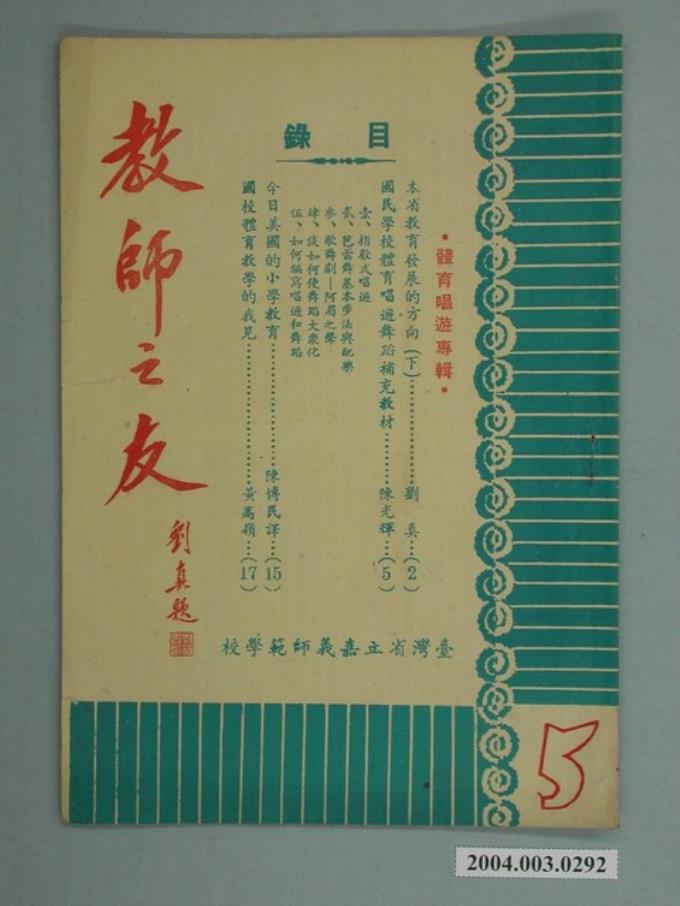 教師之友
劉真題
目錄
•體育唱遊專輯•
本省教育發展的方向(下)…………劉真…(2)
國民學校體育唱遊舞蹈補充教材………陳光輝…(5)
壹、指敎式唱遊
貳、芭蕾舞基本步法與配樂
參、歌舞劇—阿眉之聲
肆、談如何使舞蹈大眾化
伍、如何編寫唱遊和舞蹈
今日美國的小學教育……………陳博民譯…(15)
國校體育教學的我見………………黃高嶺…(17)
臺灣省立嘉義師範學校
5
2004.003.0292